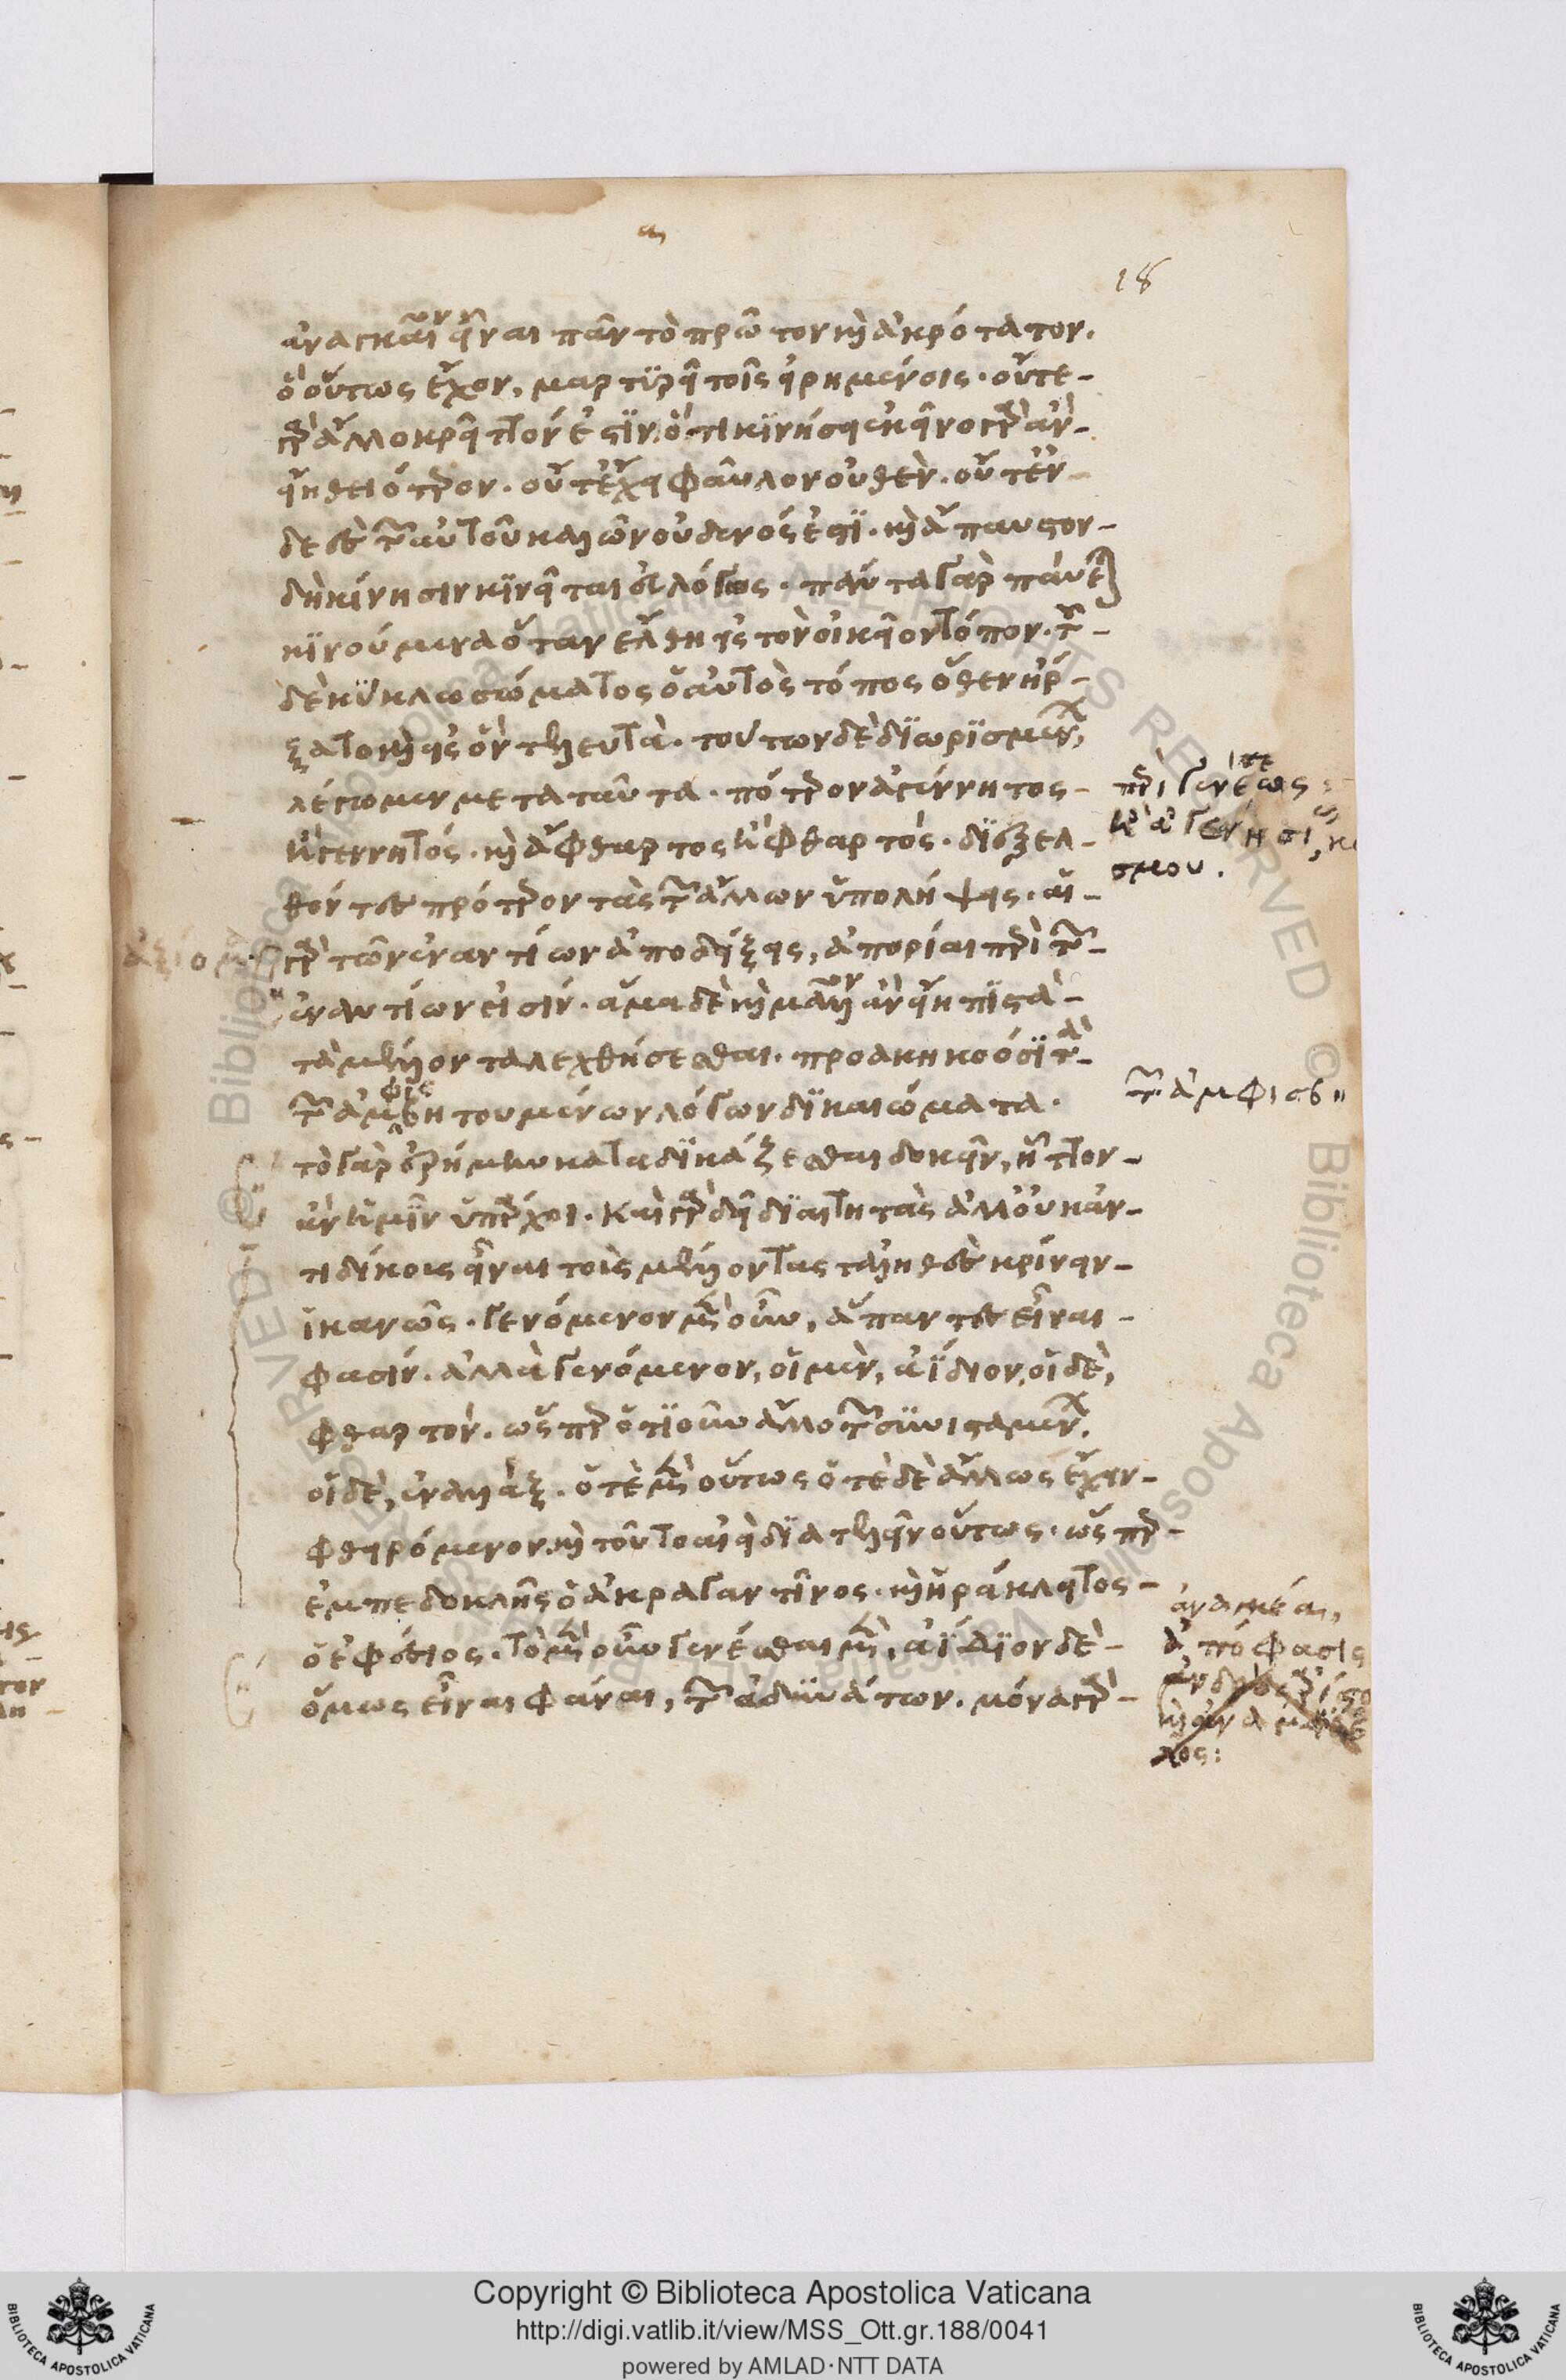 18
ἀναγκαῖον εἶναι πᾶν τὸ πρῶτον καὶ ἀκρότατον.
ὃ οὕτως ἔχον, μαρτυρεῖ τοῖς εἰρημένοις. οὔτε
γὰρ ἄλλο κρεῖττόν ἐστιν ὅ,τι κινήσει. ἐκεῖνο γὰρ ἂν
εἴη θειότερον. οὔτ' ἔχει φαῦλον οὐθέν. οὔτ' ἐν
δεὲς τῶν αὐτοῦ καλῶν οὐδενός ἐστι. καὶ ἄπαυστον
δὴ κίνησιν κινεῖται εὐλόγως. πάντα γὰρ παύεται
κινούμενα ὅταν ἔλθῃ εἰς τὸν οἰκεῖον τόπον. τοῦ
δὲ κύκλῳ σώματος ὁ αὐτὸς τόπος ὅθεν ἤρ
ξατο καὶ εἰς ὃν τελευτᾷ. τούτων δὲ διωρισμένων,
λέγωμεν μετὰ ταῦτα. πότερον ἀγέννητος
ἢ γεννητός. καὶ ἄφθαρτος ἢ φθαρτός. διεξελ
θόντες πρότερον τὰς τῶν ἄλλων ὑπολήψεις. αἱ
γὰρ τῶν ἐναντίων ἀποδείξεις, ἀπορίαι περὶ τῶν
ἐναντίων εἰσίν. ἅμα δὲ καὶ μᾶλλον ἂν εἴη πιστὰ
τὰ μέλλοντα λεχθήσεσθαι. προακηκοόσι τὰ
τῶν ἀμφισβητουμένων λόγων δικαιώματα.
τὸ γὰρ ἐρήμην καταδικάζεσθαι δοκεῖν, ἧττον
ἂν ἡμῖν ὑπάρχοι. καὶ γὰρ δεῖ διαιτητὰς ἀλλ' οὐκ ἀν
τιδίκους εἶναι τοὺς μέλλοντας τἀληθὲς κρίνειν
ἱκανῶς. γενόμενον μὲν οὖν, ἅπαντες εἶναι
φασίν. ἀλλὰ γενόμενον, οἱ μὲν, ἀΐδιον, οἱ δὲ,
φθαρτόν. ὥσπερ ὁτιοῦν ἄλλο τῶν συνισταμένων.
οἱ δὲ, ἐναλλάξ. ὁτὲ μὲν οὕτως ὁτὲ δὲ ἄλλως ἔχειν
φθειρόμενον. καὶ τοῦτο αἰεὶ διατελεῖν οὕτως. ὥσπερ
ἐμπεδοκλῆς ὁ ἀκραγαντῖνος. καὶ ἡράκλειτος
ὁ ἐφέσιος. τὸ μὲν οὖν γενέσθαι μὲν, ἀΐδιον δὲ
ὅμως εἶναι φάναι, τῶν ἀδυνάτων. μόνα γὰρ
τῶν ἀμφισβη
ἀπόφασις
Copyright © Biblioteca Apostolica Vaticana
http://digi.vatlib.it/view/MSS_Ott.gr.188/0041
powered by AMLAD·NTT DATA